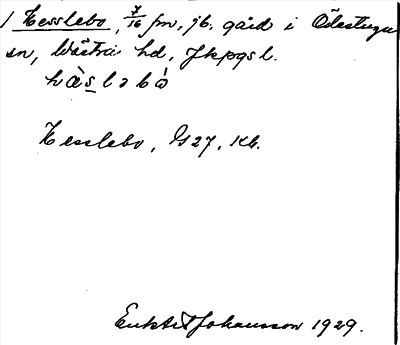 1 Hesslebo, 7/16 fm, jb. gård i Ödestugu
sn, Västra hd, Jkpgs l.
hàs̲ləbó
Hesslebo, G27, Kb.
Johansson 1929.